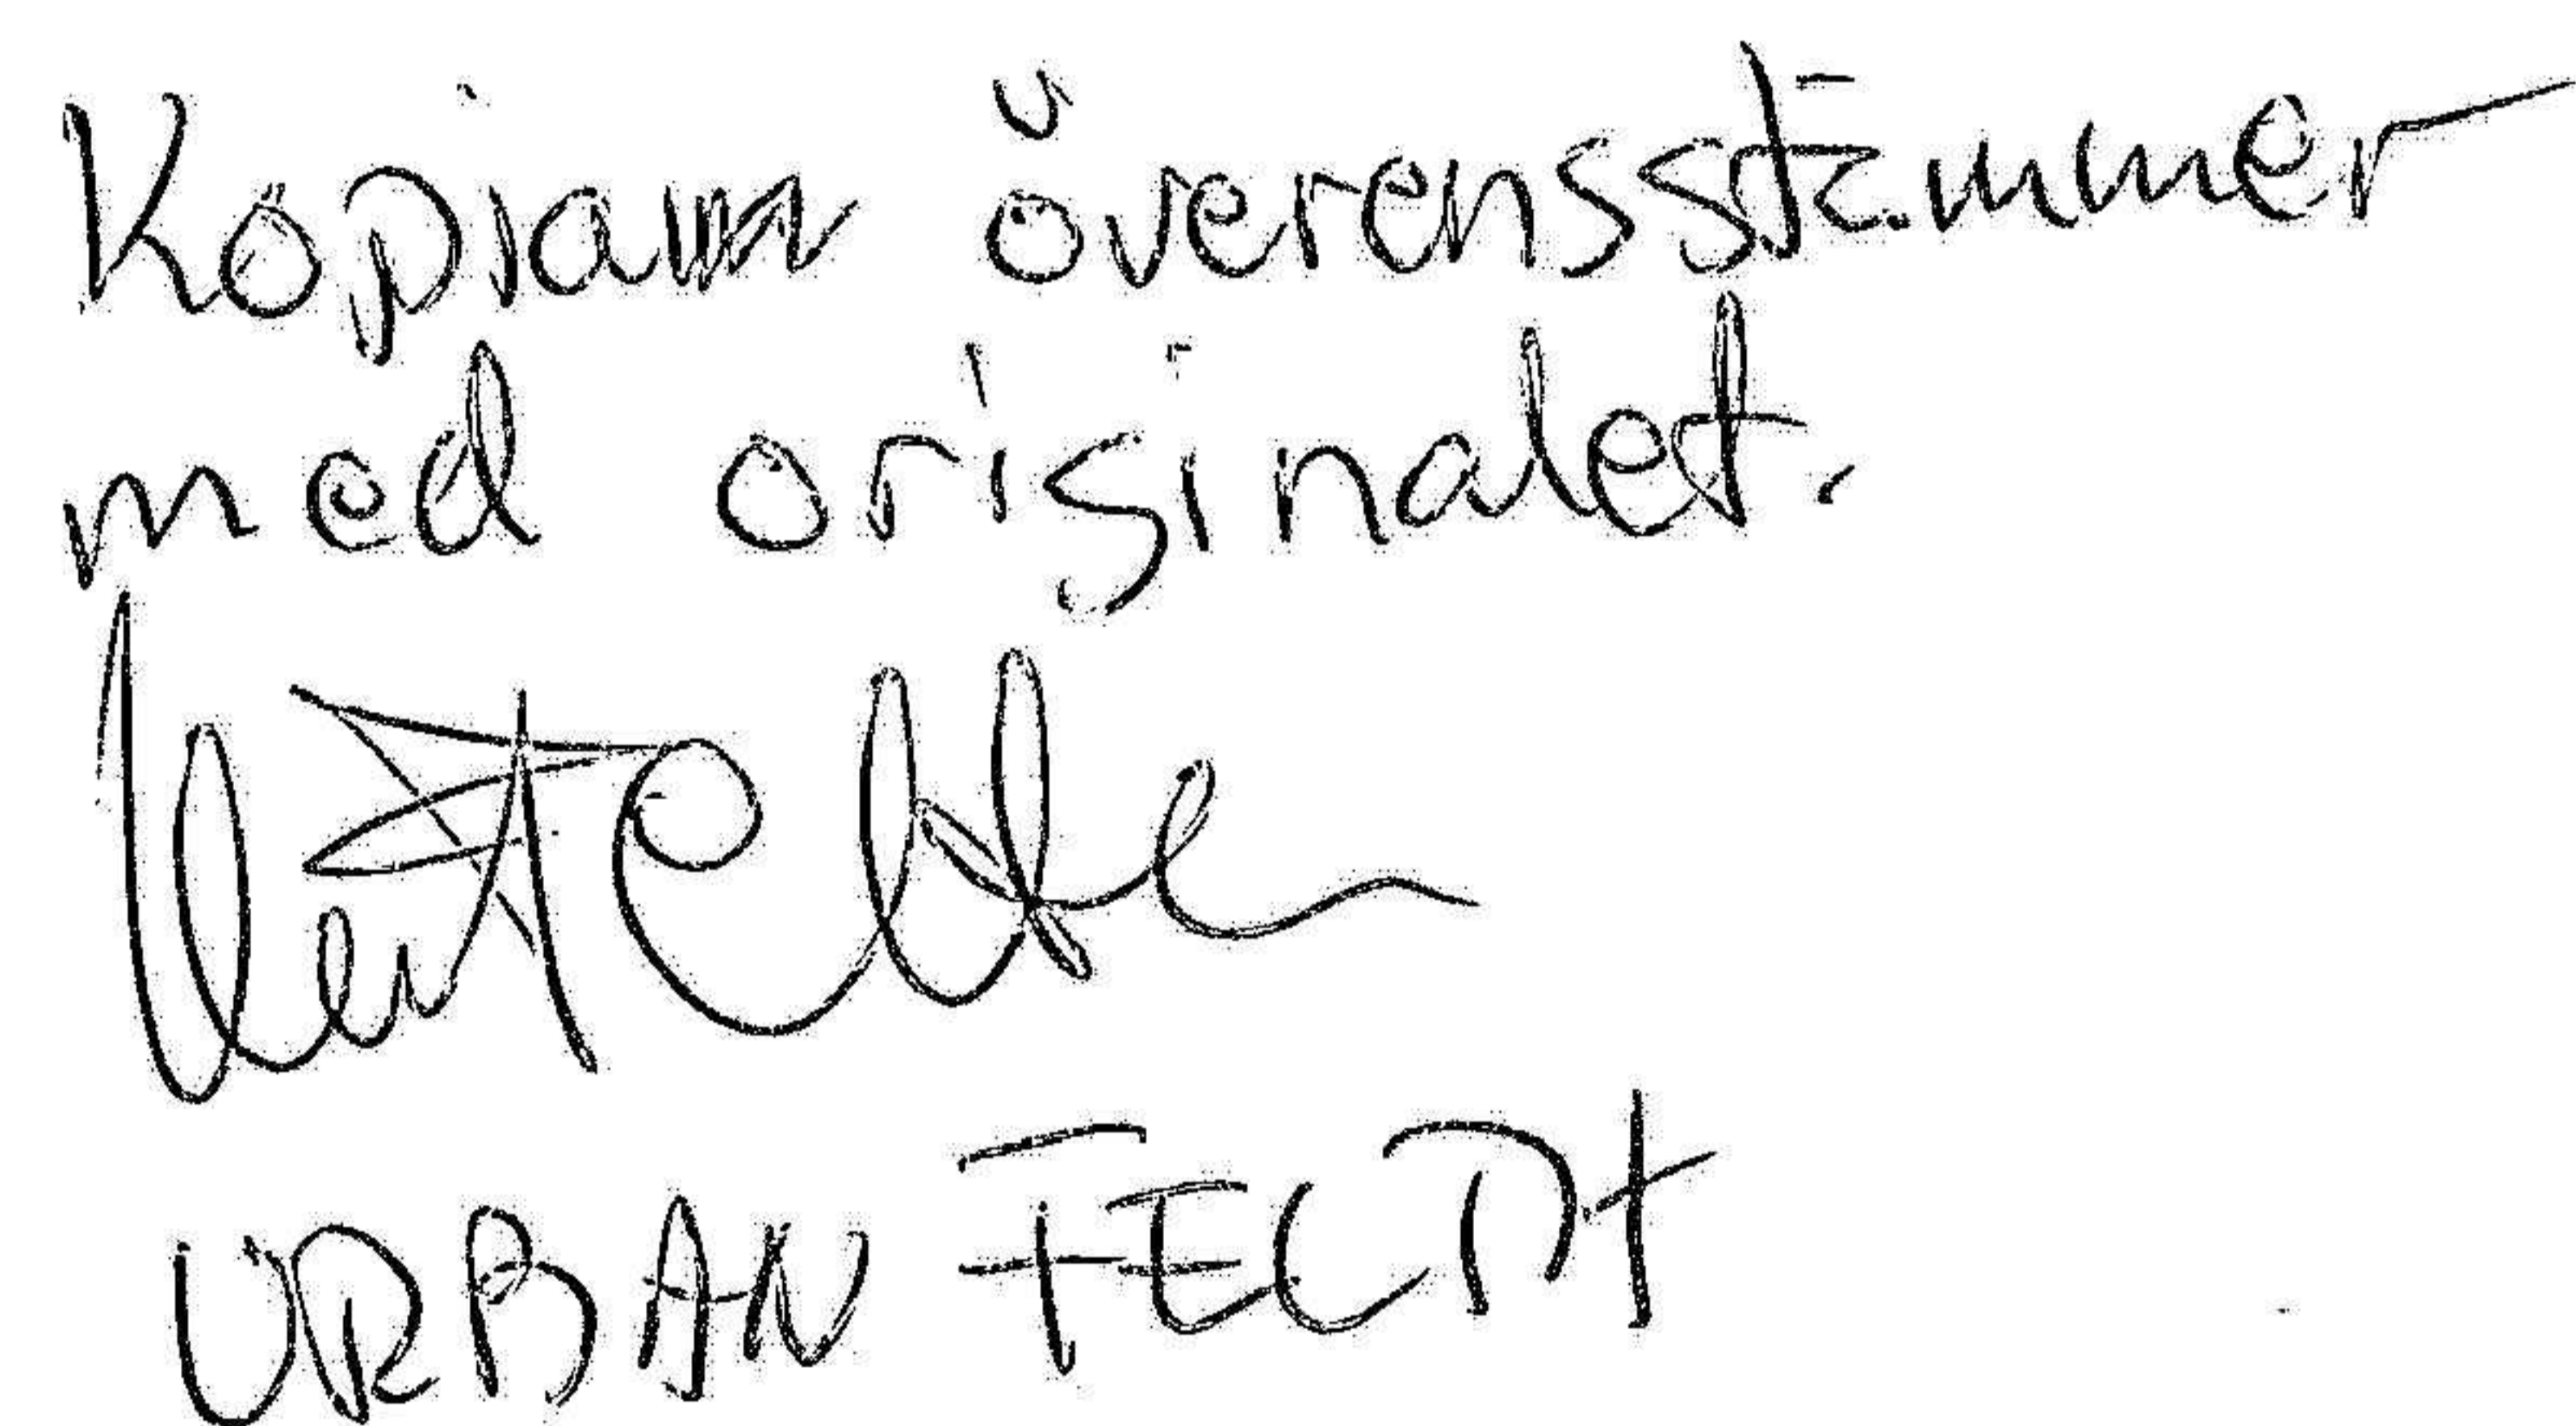 Kopian överensstämmer
med originalet.
URBAN FELDT